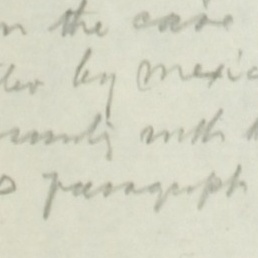 in the case
by Mexic
with
paragraph